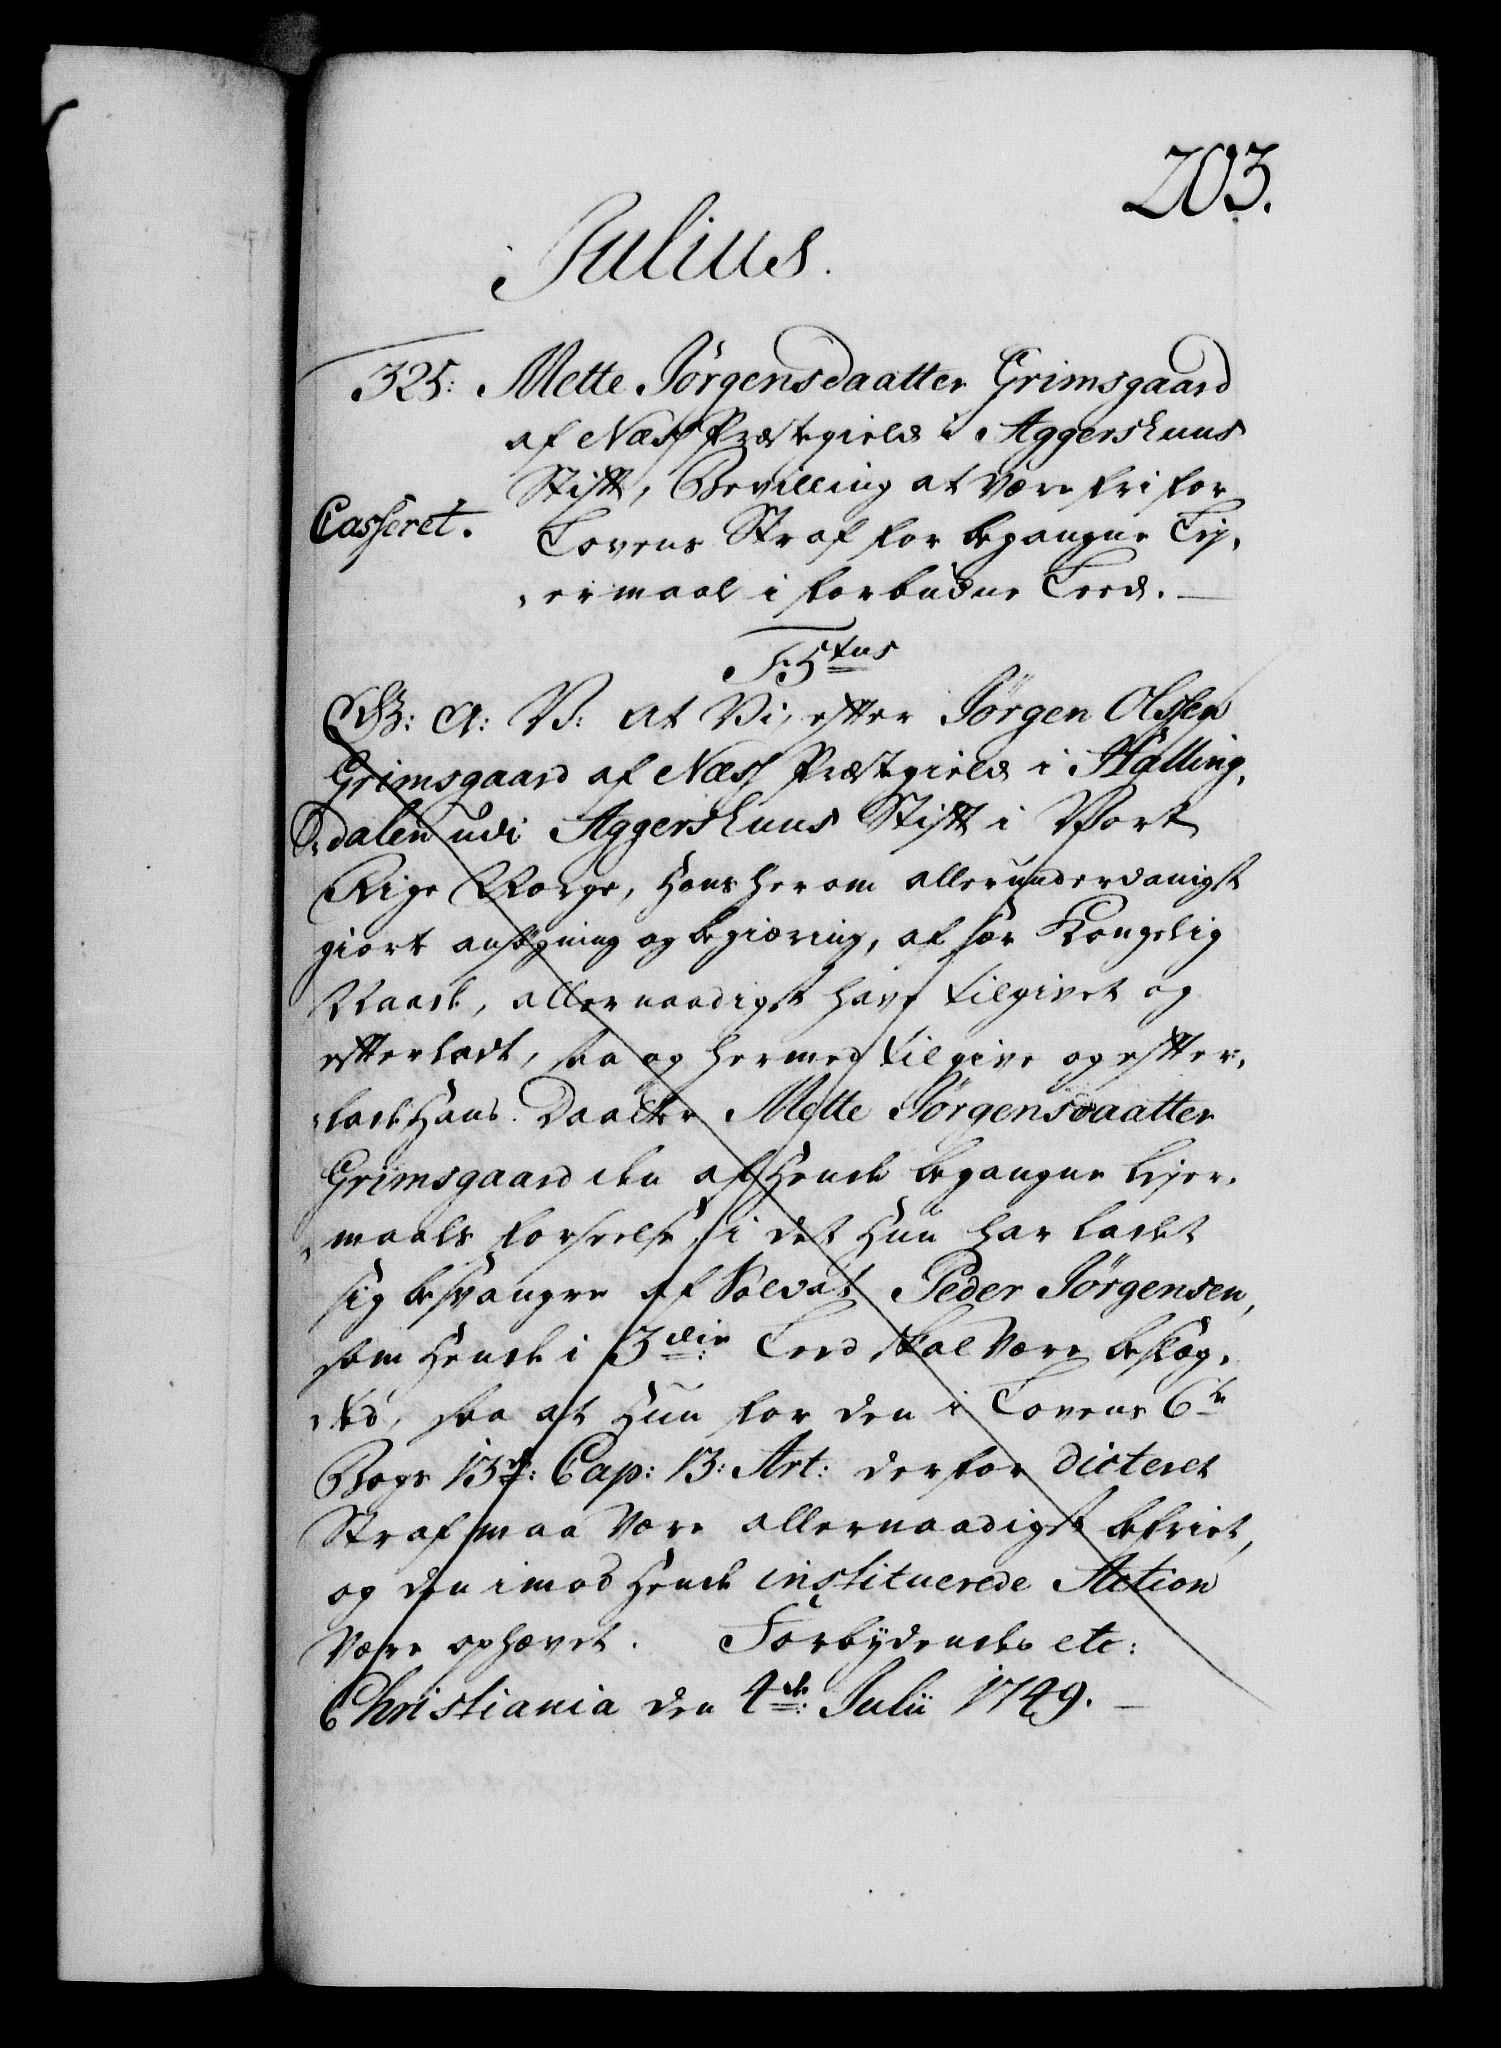 203.
Julius.
325: Mette Jørgensdaatter Grimsgaard
af Næss Præstegield i Aggershuus
Stift, Bevilling at være fri for
Casseret.
Lovens Straf for begangne Lej-
ermaal i forbudne Leed.
F: 5tus
G: A: V: at Vi, efter Jørgen Olssen
Grimsgaard af Næss Præstegield i Halling-
dalen udi Aggershuus Stift i Vort
Rige Norge, hans herom allerunderdanigst
giorte ansøgning og begiæring, af sær Kongelig
Naade, allernaadigst have tilgivet og
efterladt, saa og hermed tilgive og efter-
lade Hans Daatter Mette Jørgensdaatter
Grimsgaard den af Hende begangne Lejer-
maals forseelse, i det Hun har ladet
sig besvangre af Soldat Peder Jørgensen,
som Hende i 3die Leed skal være beslæg-
tet, saa at Hun for den i Lovens 6te
Bogs 13de: Cap: 13: Art: derfor dicteret
Straf maa være allernaadigst befriet,
og den imod Hende instituerede Action
være ophævet. Forbydendes etc:
Christiania den 4de: Julii 1749.